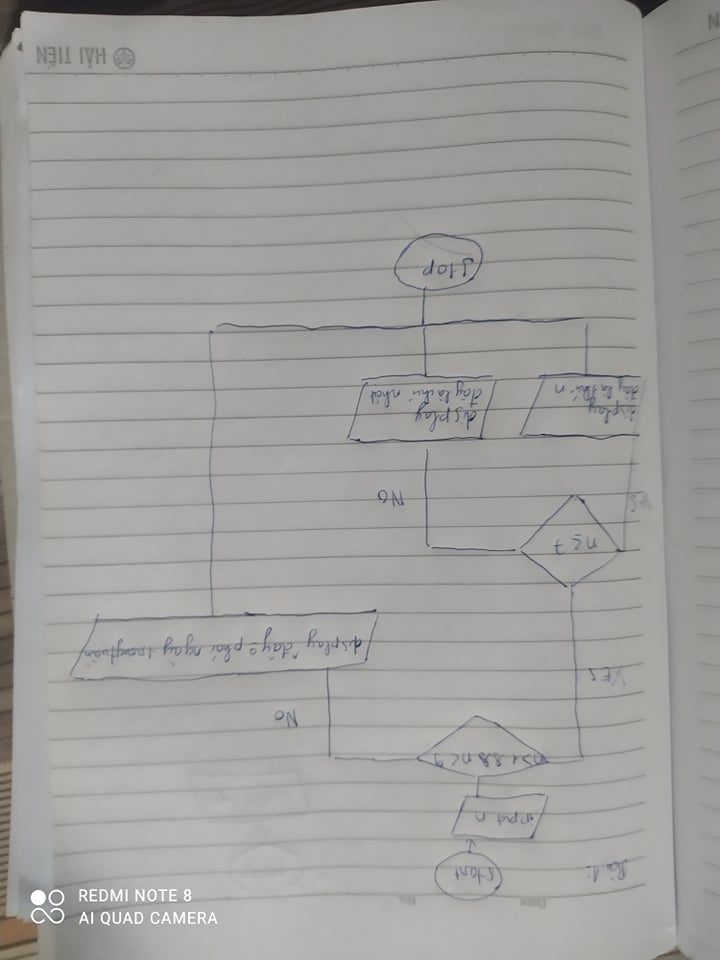 REDMI NOTE 8
AI QUAD CAMERA
Date No.
Bài 1:
start
input n
n>1 && n<9
YES
No
display "đây o phải ngày trong tuần
n ≤ 7
YES
NO
display
đây là thứ n
display
đây là chủ nhật
stop
HẢI TIẾN
N